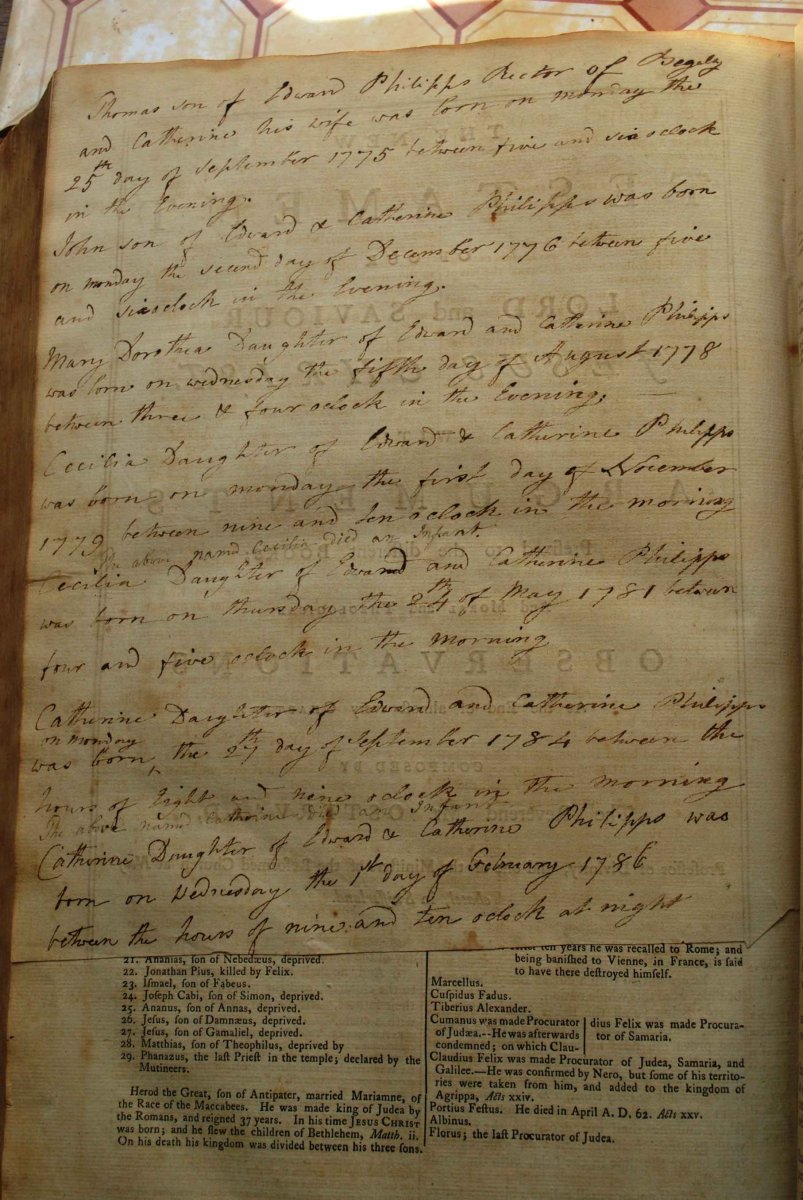 Thomas son of Edward Philipps Rector of Begely
and Catherine his wife was born on monday the
25th day of September 1775 between five and six oclock
in the Evening.
John son of Edward & Catherine Philipps was born
on monday the second day of December 1776 between five
and six oclock in the Evening.
Mary Dorothea Daughter of Edward and Catherine Philipps
was born on wednesday the fifth day of August 1778
between three & four oclock in the Evening.
Cecilia Daughter of Edward & Catherine Philipps
was born on monday the first day of November
1779 between nine and ten oclock in the morning
The above namd Cecilia died an Infant.
Cecilia Daughter of Edward and Catherine Philipps
was born on thursday the 24th of May 1781 between
four and five oclock in the morning
Catherine Daughter of Edward and Catherine Philipps
on monday
was born the 27th day of September 1784 between the
hours of Eight and nine oclock in the morning
The above namd Catherine died an Infant
Catherine Daughter of Edward & Catherine Philipps was
born on Wednesday the 1st day of February 1786
between the hours of nine and ten oclock at night
THE NEW
LORD and SAVIOUR
ARGUMENTS
OBSERVATIONS
COMPOSED BY
21. Ananias, son of Nebedæus, deprived.
22. Jonathan Pius, killed by Felix.
23. Ismael, son of Fabeus.
24. Joseph Cabi, son of Simon, deprived.
25. Ananus, son of Annas, deprived.
26. Jesus, son of Damnæus, deprived.
27. Jesus, son of Gamaliel, deprived.
28. Matthias, son of Theophilus, deprived by
29. Phanazus, the last Priest in the temple; declared by the
Mutineers.
Herod the Great, son of Antipater, married Mariamne, of
the Race of the Maccabees. He was made king of Judea by
the Romans, and reigned 37 years. In his time JESUS CHRIST
was born; and he slew the children of Bethlehem, Matth. ii.
On his death his kingdom was divided between his three sons.
after ten years he was recalled to Rome; and
being banished to Vienne, in France, is said
to have there destroyed himself.
Marcellus.
Cuspidus Fadus.
Tiberius Alexander.
Cumanus was made Procurator
of Judæa.--He was afterwards
condemned; on which Clau-
dius Felix was made Procura-
tor of Samaria.
Claudius Felix was made Procurator of Judea, Samaria, and
Galilee.—He was confirmed by Nero, but some of his territo-
ries were taken from him, and added to the kingdom of
Agrippa, Acts xxiv.
Portius Festus. He died in April A. D. 62. Acts xxv.
Albinus.
Florus; the last Procurator of Judea.